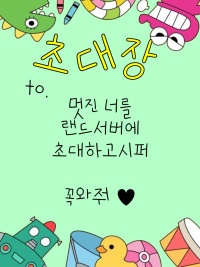 초대장
to.
멋진 너를
랜드서버에
초대하고시퍼
꼭와줘